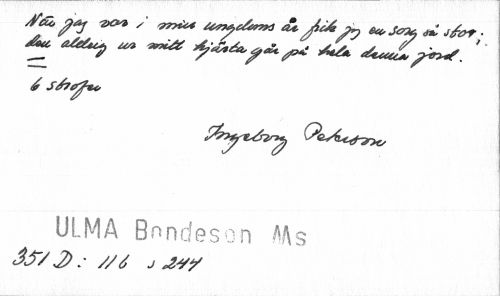 När jag var i min ungdoms år fick jg en sorg så stor;
den aldrig ur mitt hjärta går på hela denna jord.
6 strofer
Ingeborg Peterson
ULMA Bondeson Ms
351 D: 116 s 244